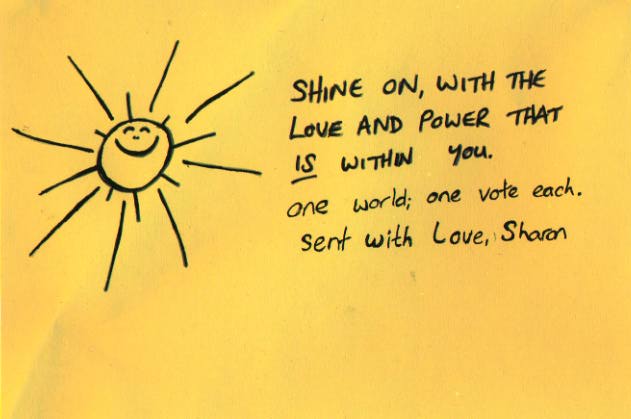 SHINE ON, WITH THE
LOVE AND POWER THAT
IS WITHIN YOU.
one world; one vote each.
sent with Love, Sharon